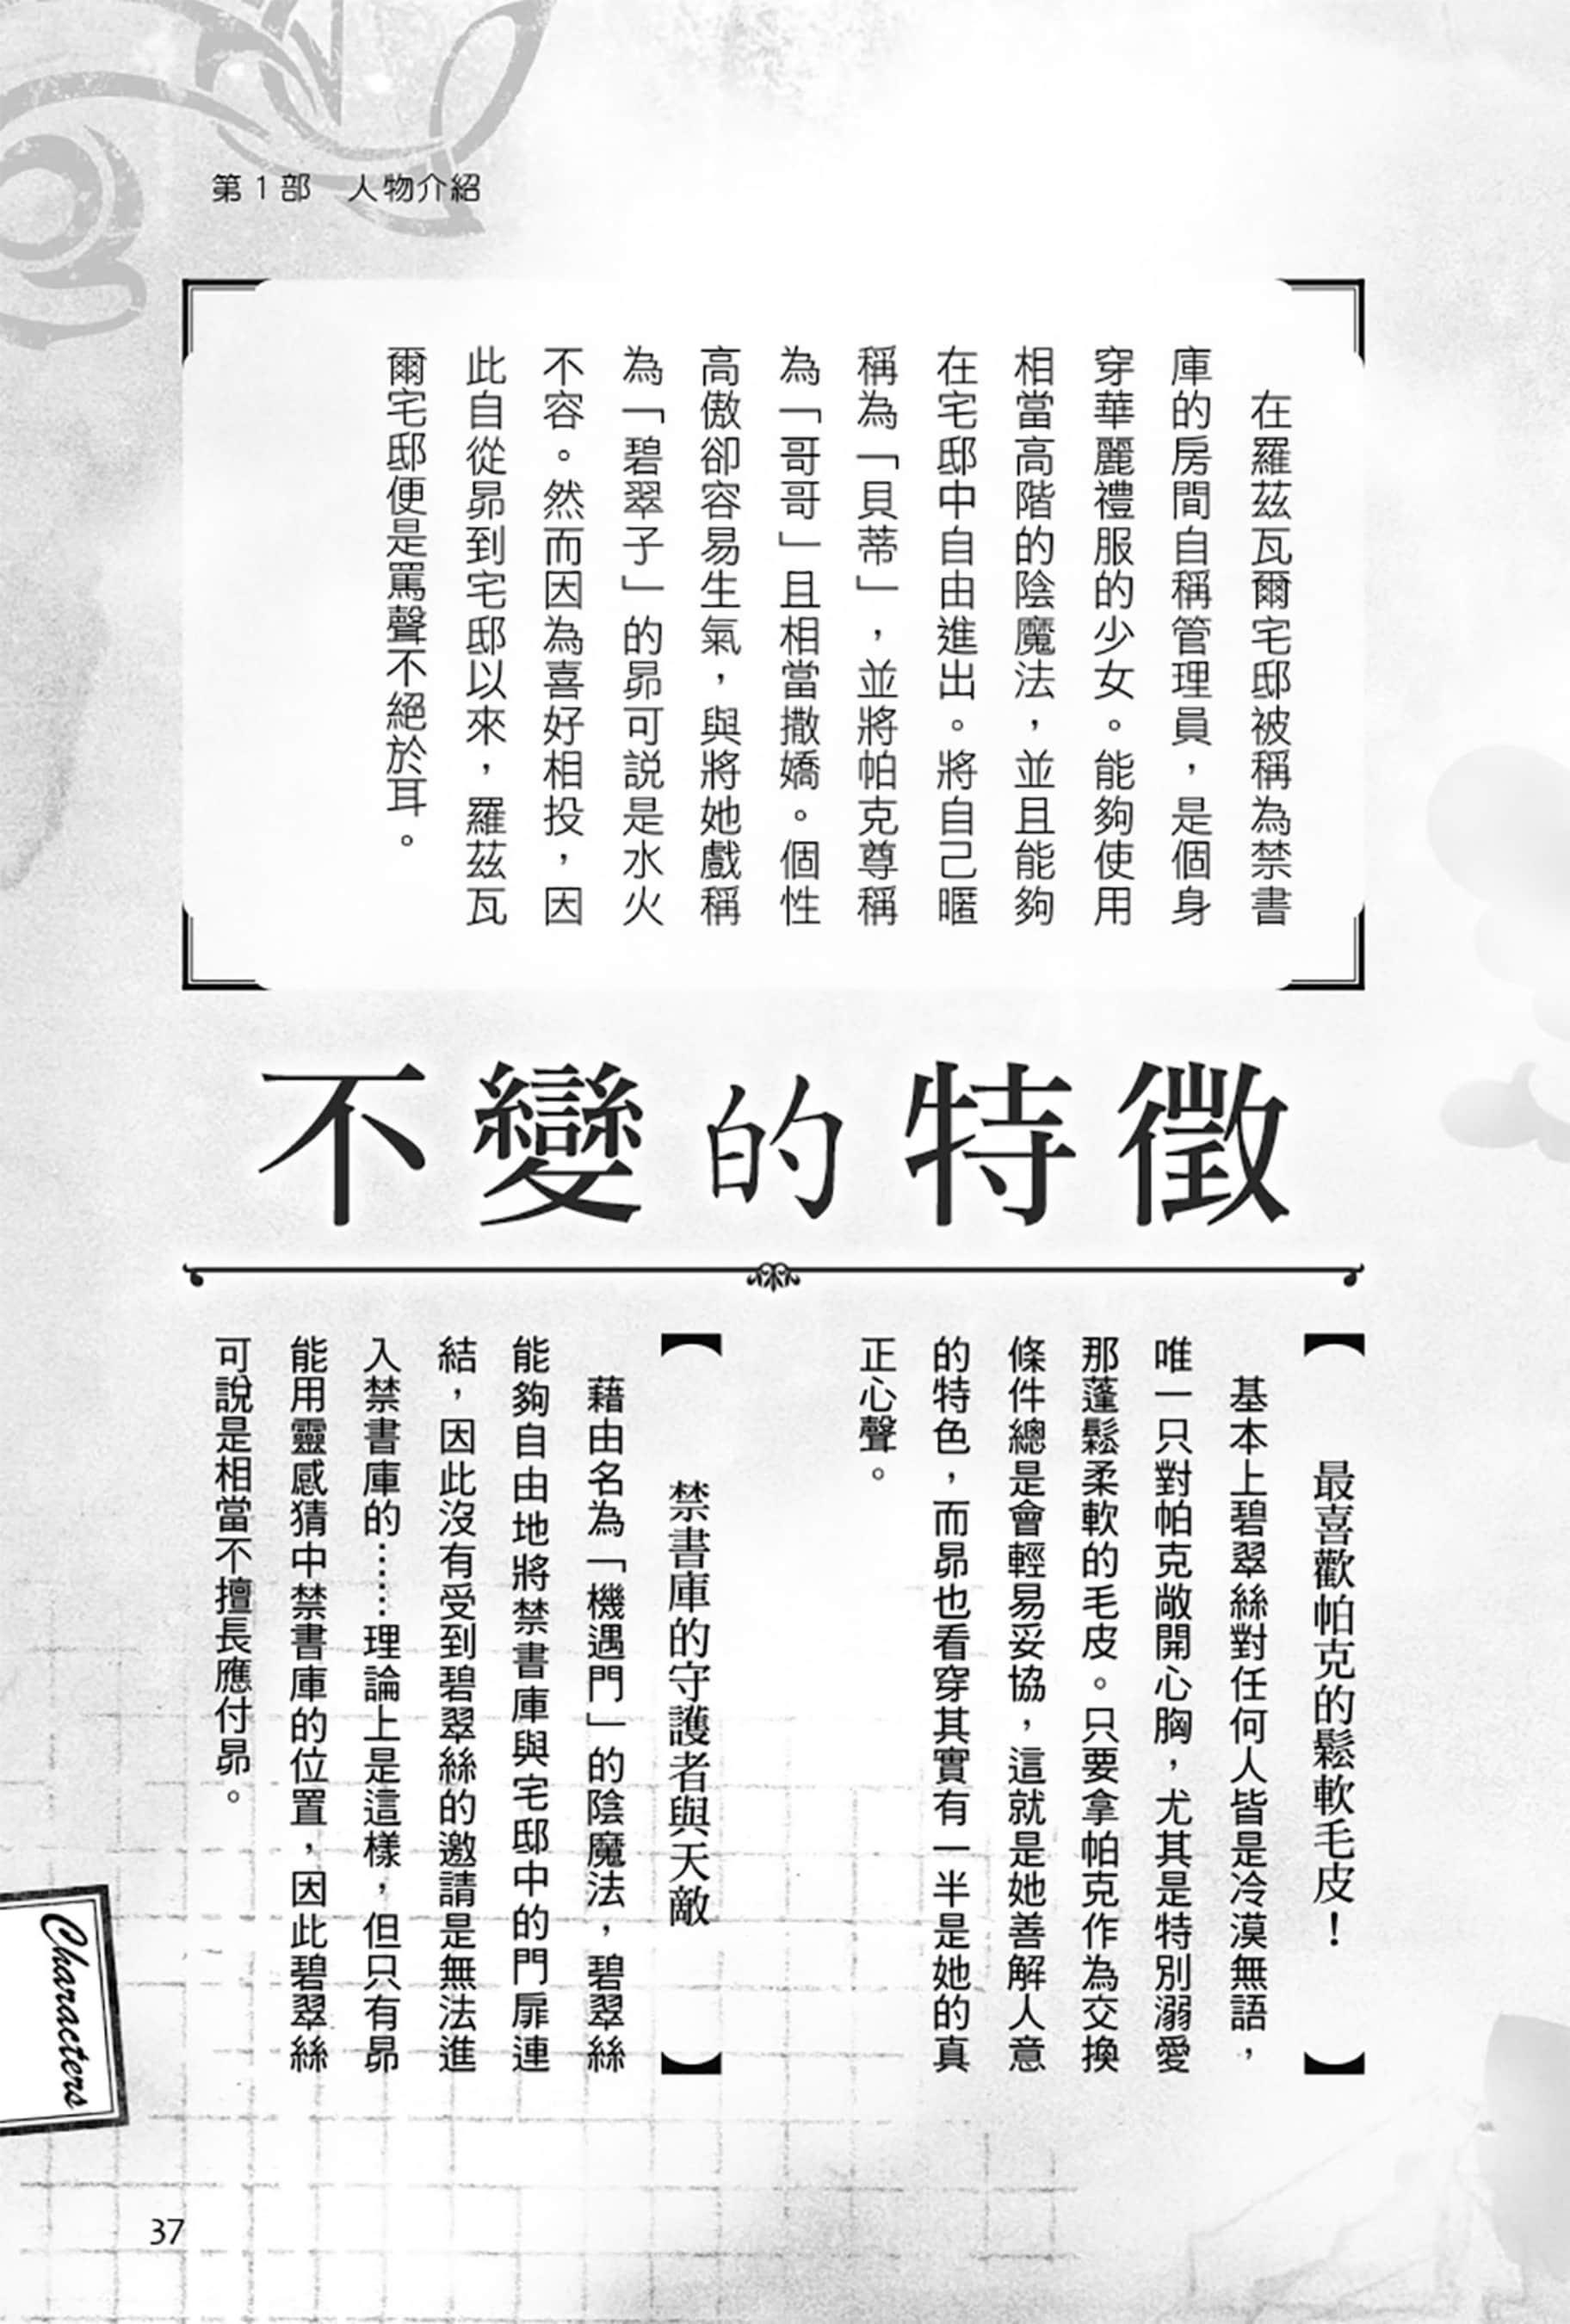 第1部　人物介紹
在羅茲瓦爾宅邸被稱為禁書
庫的房間自稱管理員，是個身
穿華麗禮服的少女。能夠使用
相當高階的陰魔法，並且能夠
在宅邸中自由進出。將自己暱
稱為「貝蒂」，並將帕克尊稱
為「哥哥」且相當撒嬌。個性
高傲卻容易生氣，與將她戲稱
為「碧翠子」的昴可說是水火
不容。然而因為喜好相投，因
此自從昴到宅邸以來，羅茲瓦
爾宅邸便是罵聲不絕於耳。
不變的特徵
【最喜歡帕克的鬆軟毛皮！】
基本上碧翠絲對任何人皆是冷漠無語，
唯一只對帕克敞開心胸，尤其是特別溺愛
那蓬鬆柔軟的毛皮。只要拿帕克作為交換
條件總是會輕易妥協，這就是她善解人意
的特色，而昴也看穿其實有一半是她的真
正心聲。
【禁書庫的守護者與天敵】
藉由名為「機遇門」的陰魔法，碧翠絲
能夠自由地將禁書庫與宅邸中的門扉連
結，因此沒有受到碧翠絲的邀請是無法進
入禁書庫的……理論上是這樣，但只有昴
能用靈感猜中禁書庫的位置，因此碧翠絲
可說是相當不擅長應付昴。
Characters
37